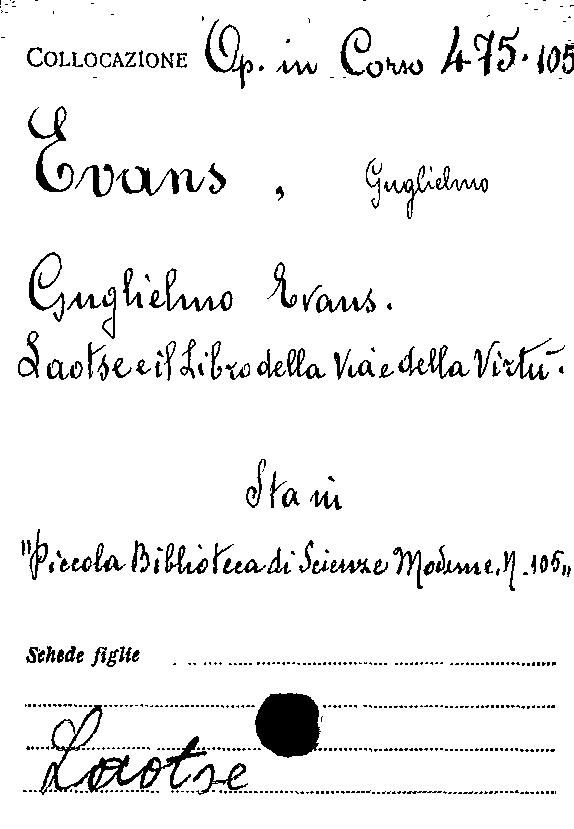 COLLOCAZIONE Op. in Corso 475.105
Evans, Guglielmo
Guglielmo Evans.
Laotse e il Libro della Via e della Virtù.
Sta in
"Piccola Biblioteca di Scienze Moderne, N. 105„
Schede figlie
Laotse